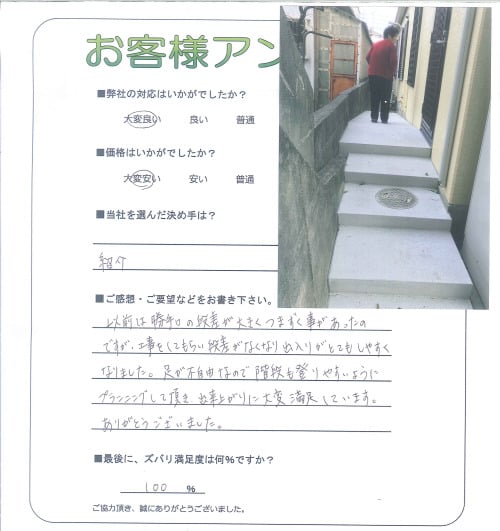 お客様アン
■弊社の対応はいかがでしたか？
大変良い 良い 普通
■価格はいかがでしたか？
大変安い 安い 普通
■当社を選んだ決め手は？
紹介
■ご感想・ご要望などをお書き下さい。
以前は勝手口の段差が大きくつまずく事があったの
ですが、工事をしてもらい段差がなくなり出入りがとてもしやすく
なりました。足が不自由なので階段も登りやすいように
プランニングして頂き出来上がりに大変満足しています。
ありがとうございました。
■最後に、ズバリ満足度は何%ですか？
100 %
ご協力頂き、誠にありがとうございました。